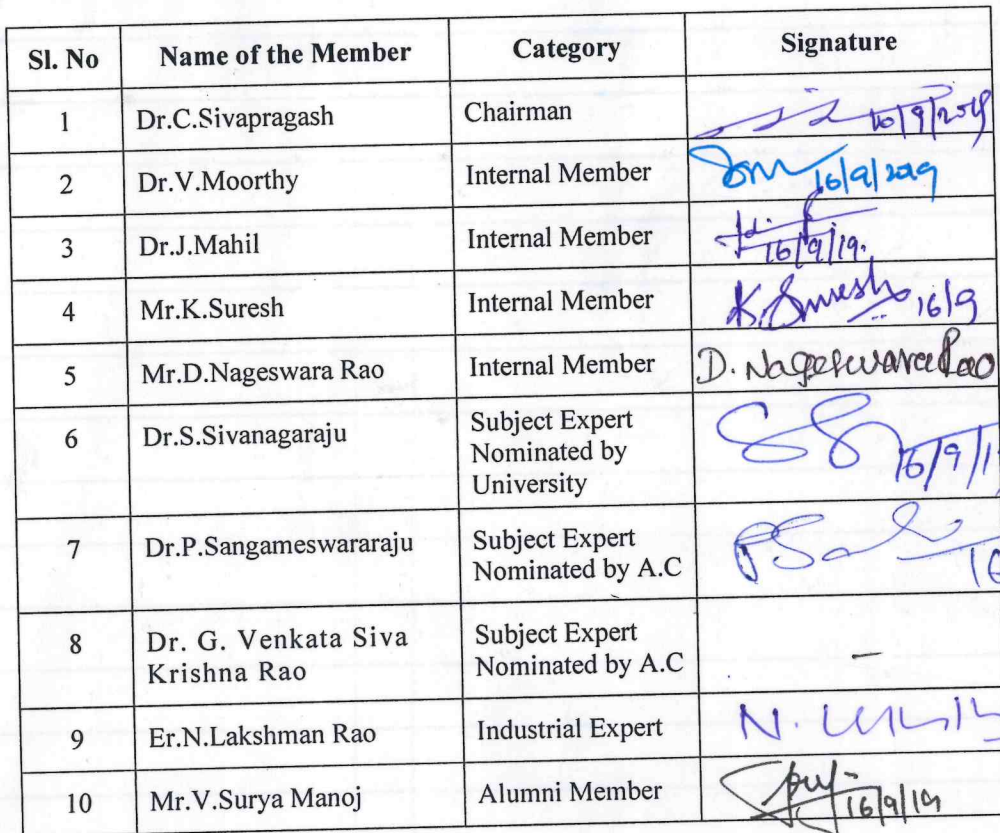 Sl. No Name of the Member Category Signature
1 Dr.C.Sivapragash Chairman 16/9/2019
2 Dr.V.Moorthy Internal Member 16/9/2019
3 Dr.J.Mahil Internal Member 16/9/19.
4 Mr.K.Suresh Internal Member K. Suresh 16/9
5 Mr.D.Nageswara Rao Internal Member D. Nageswara Rao
6 Dr.S.Sivanagaraju Subject Expert
Nominated by
University 16/9/1
7 Dr.P.Sangameswararaju Subject Expert
Nominated by A.C 16
8 Dr. G. Venkata Siva
Krishna Rao Subject Expert
Nominated by A.C –
9 Er.N.Lakshman Rao Industrial Expert N.
10 Mr.V.Surya Manoj Alumni Member 16/9/19